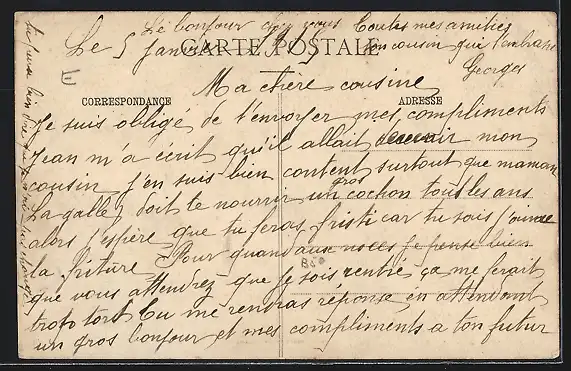 Le bonjour chez vous Toutes mes amitiés
Le 5 Janvier ton cousin que t'embrasse
CARTE POSTALE
Georges
Ma chère cousine
CORRESPONDANCE ADRESSE
Je suis obligé de t'envoyer mes compliments
Jean m'a écrit qu'il allait devenir mon
cousin j'en suis bien content surtout que maman
Lagalle doit le nourrir un gros cochon tous les ans
alors j'espère que tu feras fristi car tu sais j'aime
la friture Pour quand aux noces je pense bien
que vous attendrez que je sois rentré ça me ferait
trop tort Tu me rendras réponse en attendant
un gros bonjour et mes compliments a ton futur